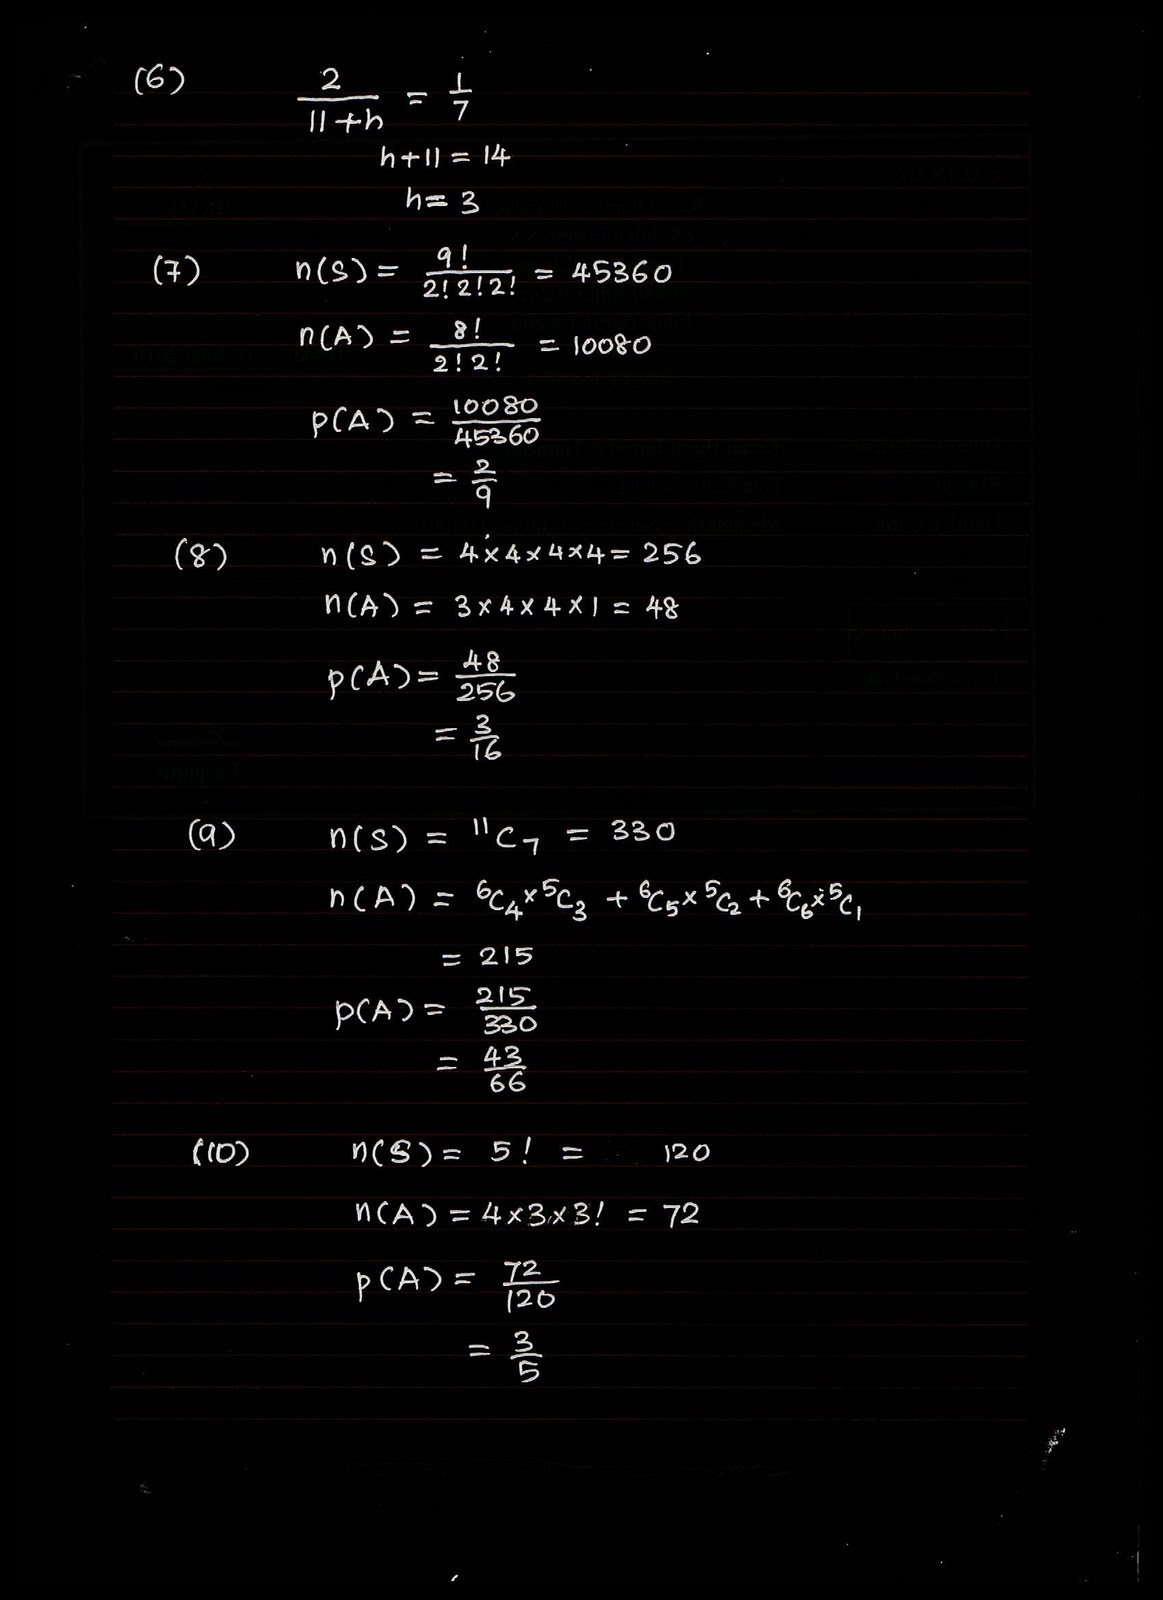 (6) 2/(11+h) = 1/7
h+11 = 14
h = 3
(7) n(S) = 9!/(2!2!2!) = 45360
n(A) = 8!/(2!2!) = 10080
P(A) = 10080/45360
= 2/9
(8) n(S) = 4×4×4×4 = 256
n(A) = 3×4×4×1 = 48
P(A) = 48/256
= 3/16
(9) n(S) = ¹¹C₇ = 330
n(A) = ⁶C₄×⁵C₃ + ⁶C₅×⁵C₂ + ⁶C₆×⁵C₁
= 215
P(A) = 215/330
= 43/66
(10) n(S) = 5! = 120
n(A) = 4×3×3! = 72
P(A) = 72/120
= 3/5